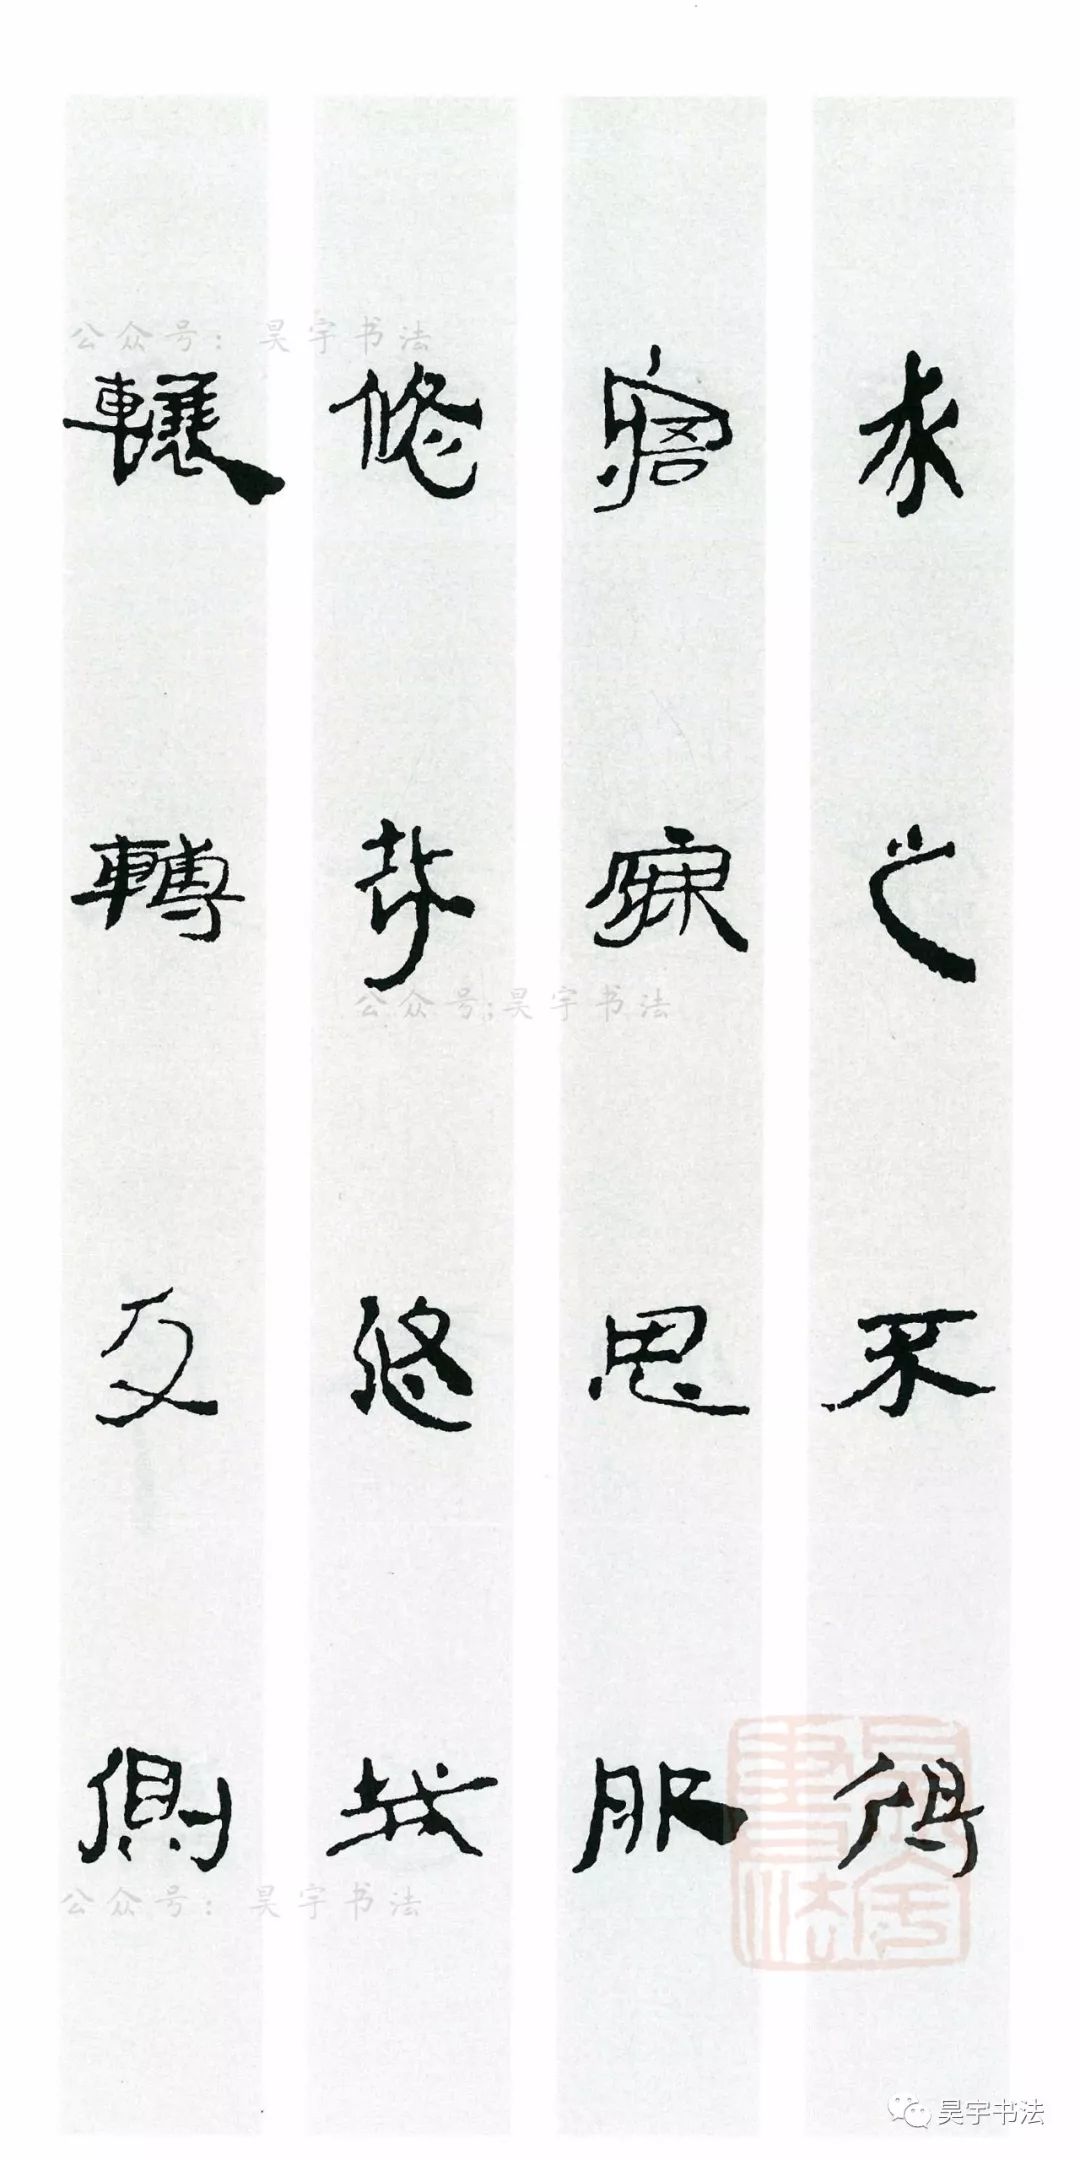 求之不得
寤寐思服
悠哉悠哉
輾轉反側
公众号：昊宇书法
公众号:昊宇书法
公众号：昊宇书法
昊宇書法
昊宇书法